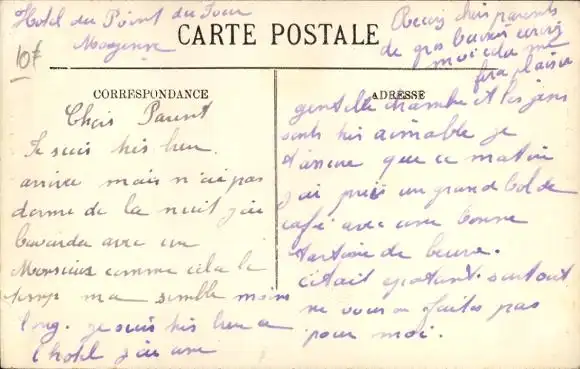 Hotel du Point du Jour
Mayenne
10f
CARTE POSTALE
Recevez chers parents
de gros baisers
moi cela me
fera plaisir
CORRESPONDANCE
Chers Parent
Je suis très bien
arrivée mais n'ai pas
dormé de la nuit j'ai
bavardé avec un
Monsieur comme cela le
temp ma semblé moins
long. je suis très bien a
l'hotel j'ai une
ADRESSE
gentille chambre et les gens
sonts très aimable je
t'assure que ce matin
j'ai pris un grand bol de
café avec une bonne
tartine de beure.
c'était épatant. surtout
ne vous en faites pas
pour moi.